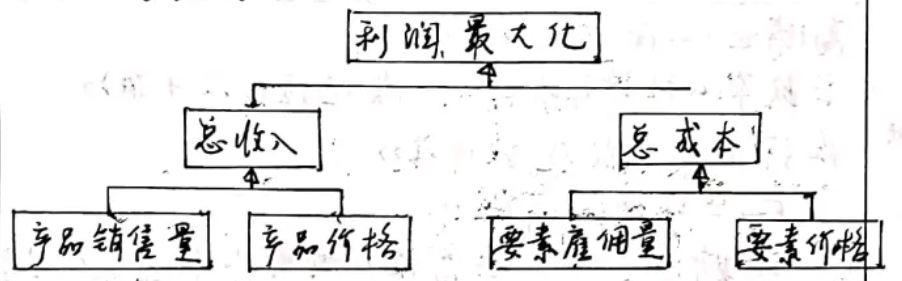 利润最大化
总收入 总成本
产品销售量 产品价格 要素雇佣量 要素价格